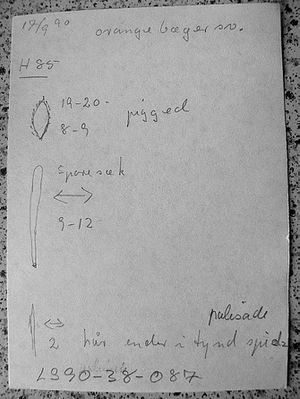 17/9 90 orange bæger sv.
H 85
19-20 pigged
8-9
sporesæk
9-12
palisade
2 hår ender i tynd spids
1990-38-087